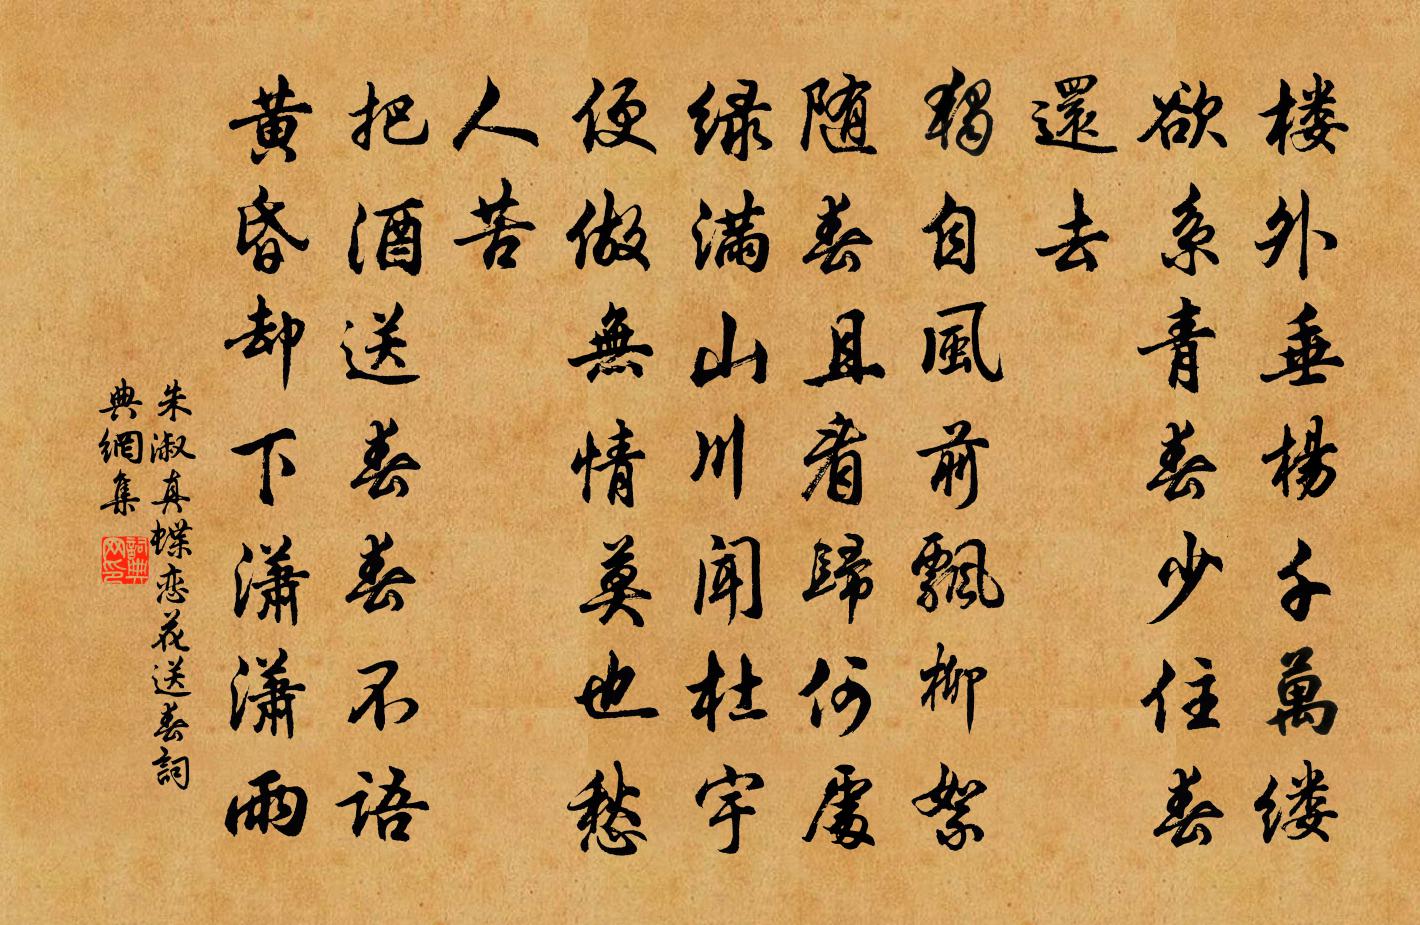 楼外垂楊千萬缕
欲系青春少住春
還去
獨自風前飄柳絮
随春且看歸何處
绿满山川闻杜宇
便做無情莫也愁
人苦
把酒送春春不語
黄昏却下潇潇雨
朱淑真蝶恋花送春詞
典網集
詞典网印